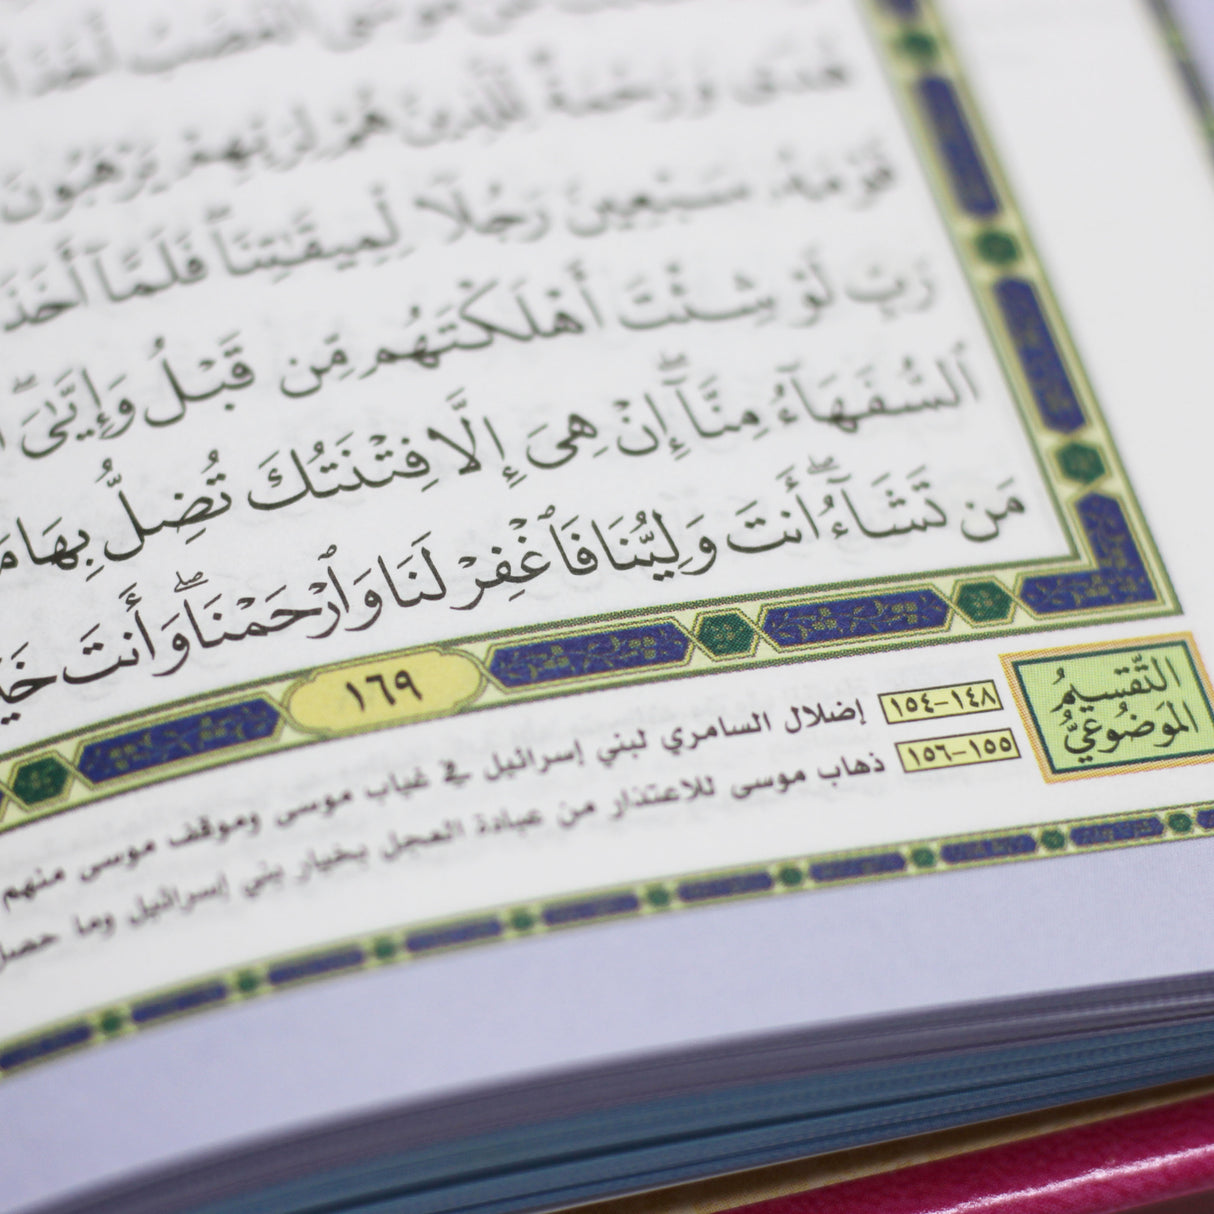 مُوسَى ٱلۡغَضَبُ أَخَذَ ٱ
هُدٗى وَرَحۡمَةٞ لِّلَّذِينَ هُمۡ لِرَبِّهِمۡ يَرۡهَبُونَ
قَوۡمَهُۥ سَبۡعِينَ رَجُلٗا لِّمِيقَٰتِنَاۖ فَلَمَّآ أَخَذَ
رَبِّ لَوۡ شِئۡتَ أَهۡلَكۡتَهُم مِّن قَبۡلُ وَإِيَّٰيَۖ
ٱلسُّفَهَآءُ مِنَّآۖ إِنۡ هِيَ إِلَّا فِتۡنَتُكَ تُضِلُّ بِهَا مَ
مَن تَشَآءُۖ أَنتَ وَلِيُّنَا فَٱغۡفِرۡ لَنَا وَٱرۡحَمۡنَاۖ وَأَنتَ خَيۡ
١٦٩
التَّقسِيمُ
المَوضُوعِيُّ
١٤٨-١٥٤ إضلال السامري لبني إسرائيل في غياب موسى وموقف موسى منهم
١٥٥-١٥٦ ذهاب موسى للاعتذار من عبادة العجل بخيار بني إسرائيل وما حصل